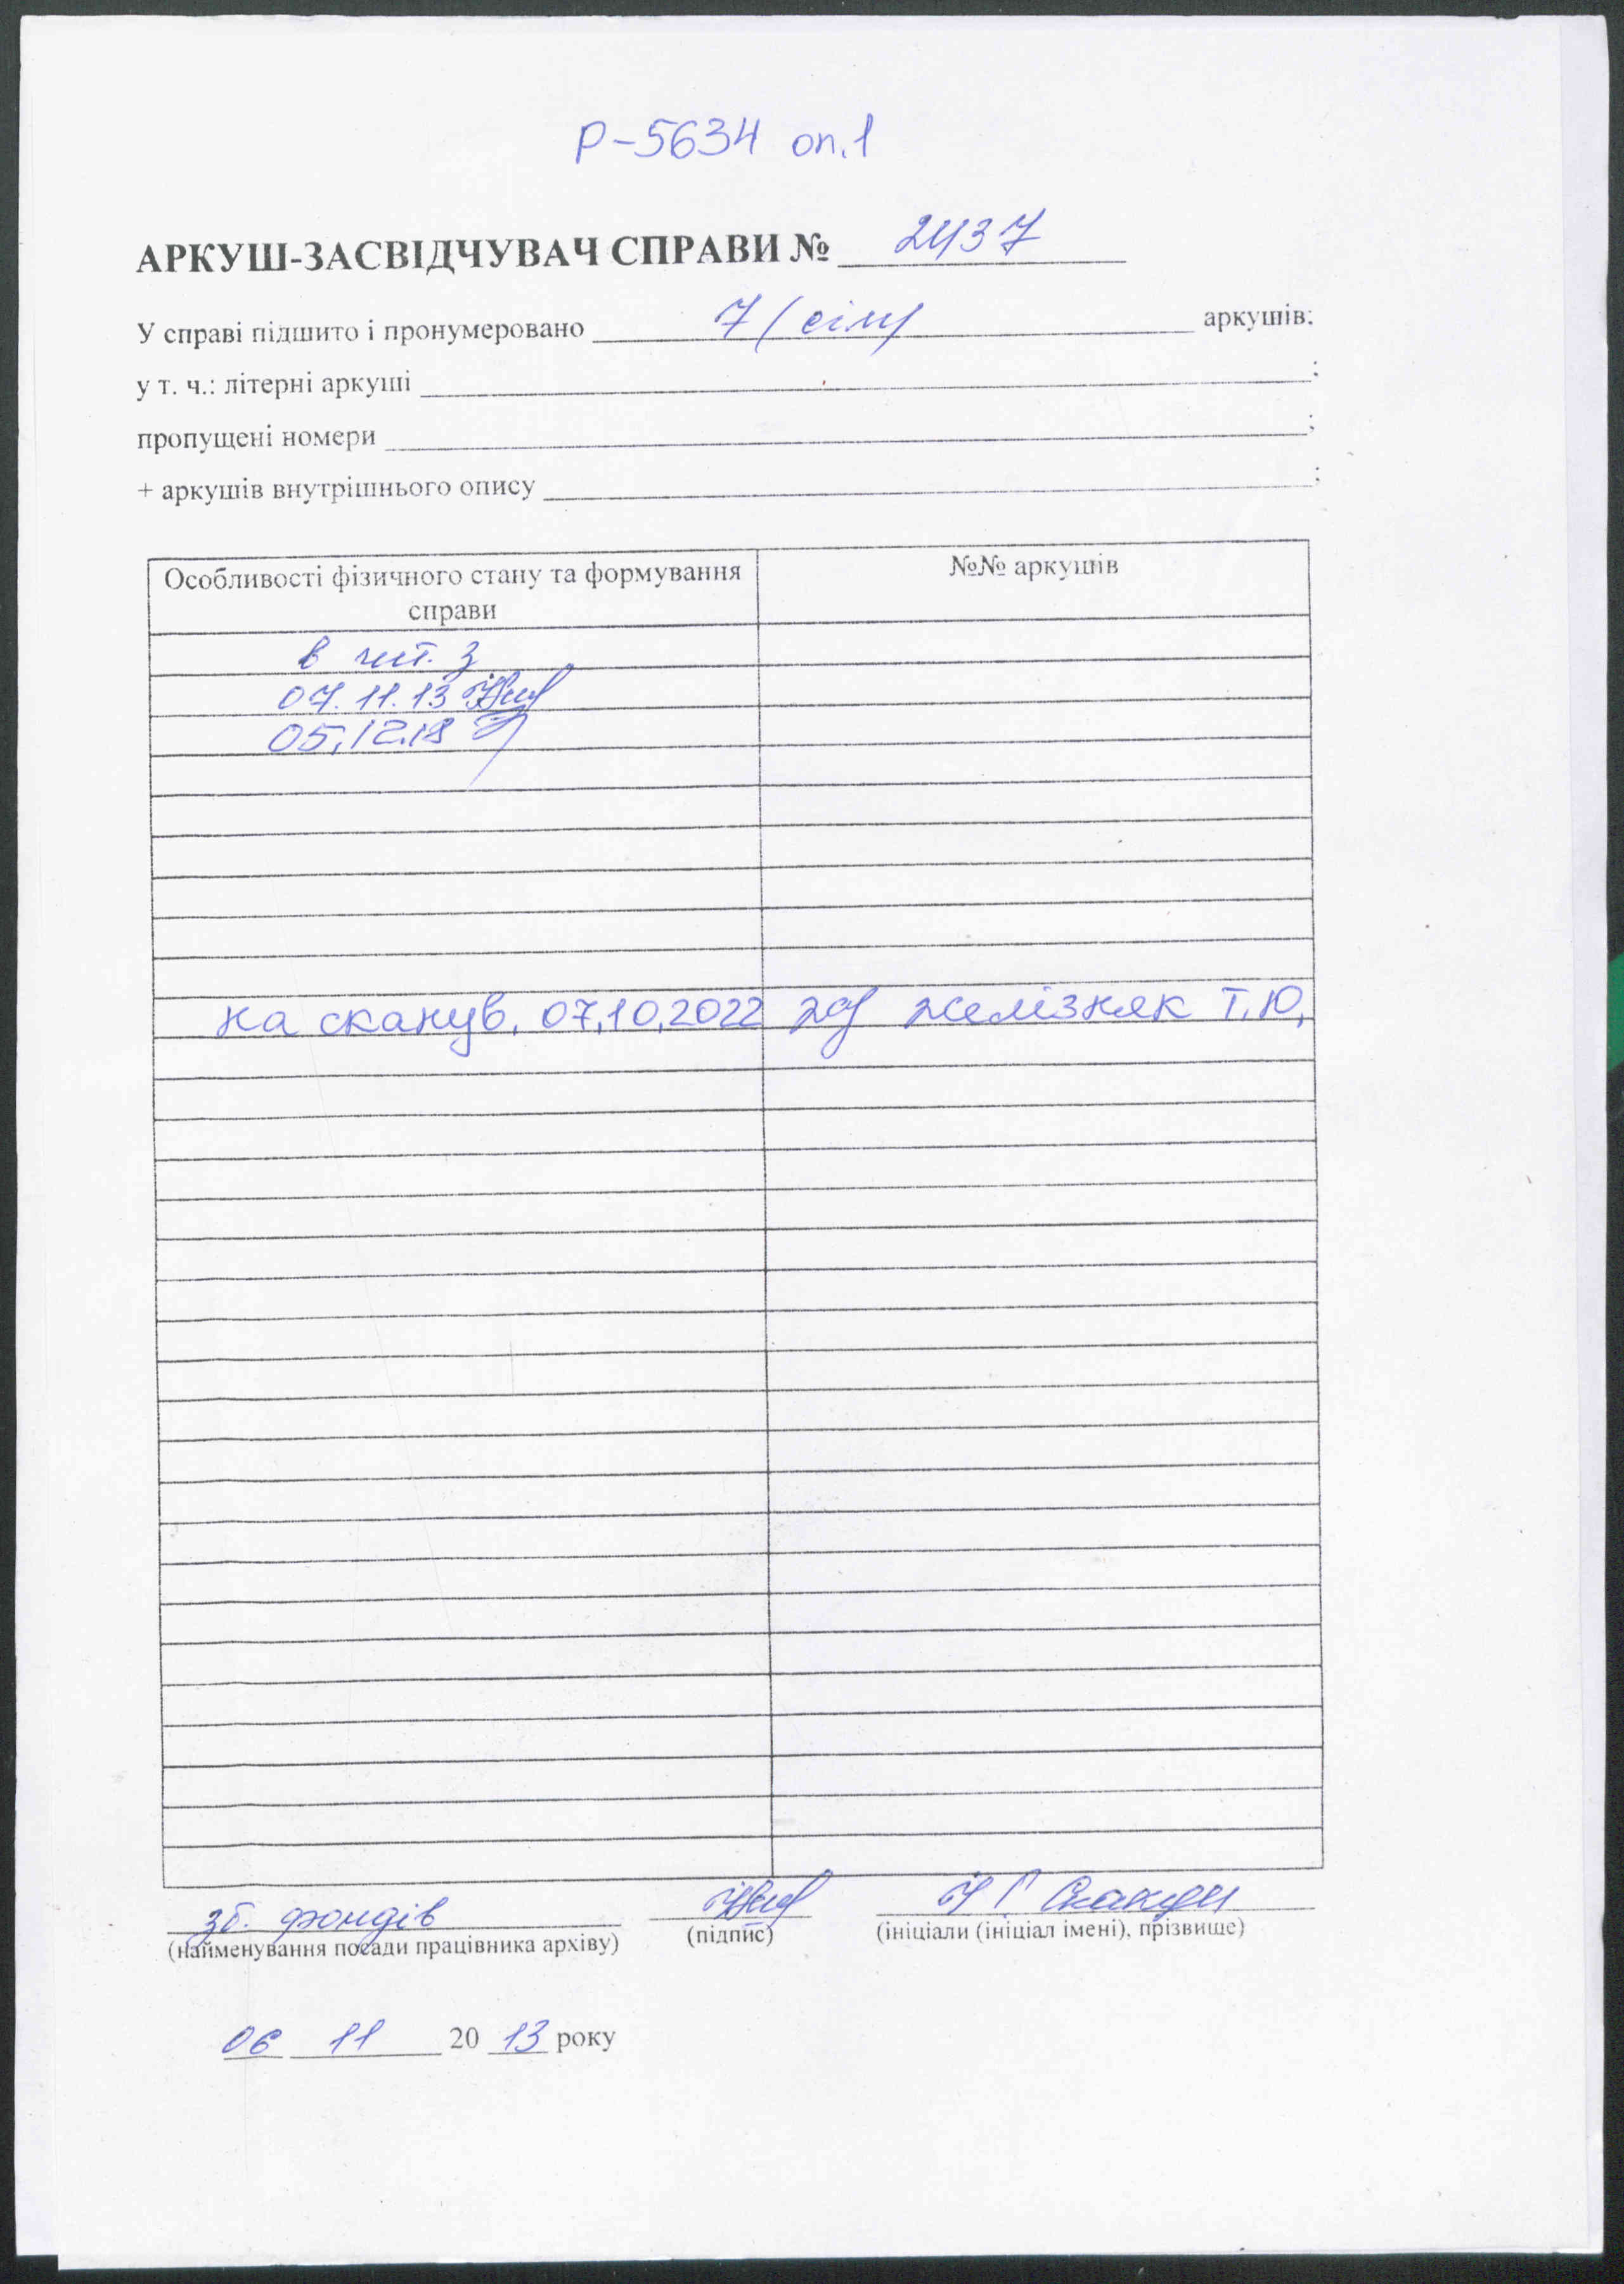 Р-5634 оп.1
АРКУШ-ЗАСВІДЧУВАЧ СПРАВИ № 2437
У справі підшито і пронумеровано 7 (сім) аркушів;
у т. ч.: літерні аркуші ;
пропущені номери ;
+ аркушів внутрішнього опису ;
Особливості фізичного стану та формування справи
№№ аркушів
в чит. з
07.11.13
05.12.18
на сканув. 07.10.2022 Желізняк Т.Ю.
зб. фондів
(найменування посади працівника архіву) (підпис) (ініціали (ініціал імені), прізвище)
06 11 20 13 року